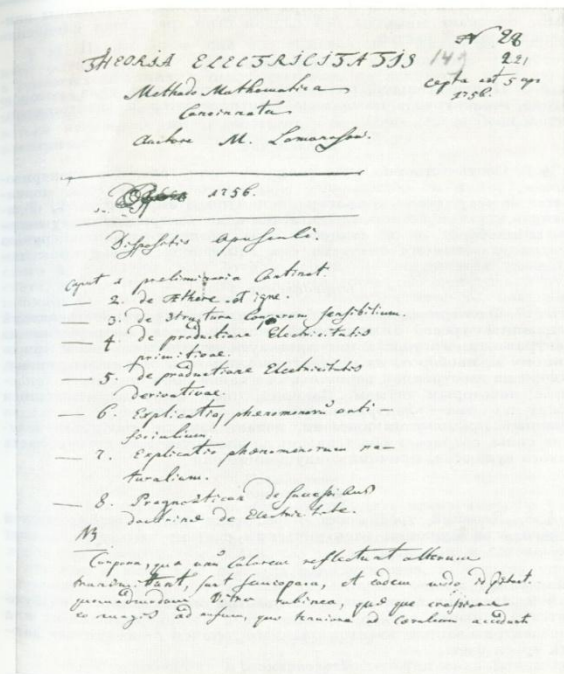 N 28
THEORIA ELECTRICITATIS 149 221
Methodo Mathematica cepta est 5 apr
Concinnata 1756.
Auctore M. Lomonosow.
1756.
Dispositio Opusculi.
Caput 1 preliminaria Continet.
— 2. de Æthere et igne.
— 3. de Structura Corporum sensibilium.
— 4. de productione Electricitatis
primitivae.
— 5. de productione Electricitatis
derivativae.
— 6. Explicatio phenomenorum arti-
ficialium.
— 7. Explicatio phaenomenorum na-
turalium.
— 8. de successibus
doctrinae de Electricitate.
NB
Corpora, quae unum Colorem reflectunt alterum
transmittunt, sunt et eodem modo
quemadmodum Vitra rubinea, quae
eo magis ad quo ad accedunt